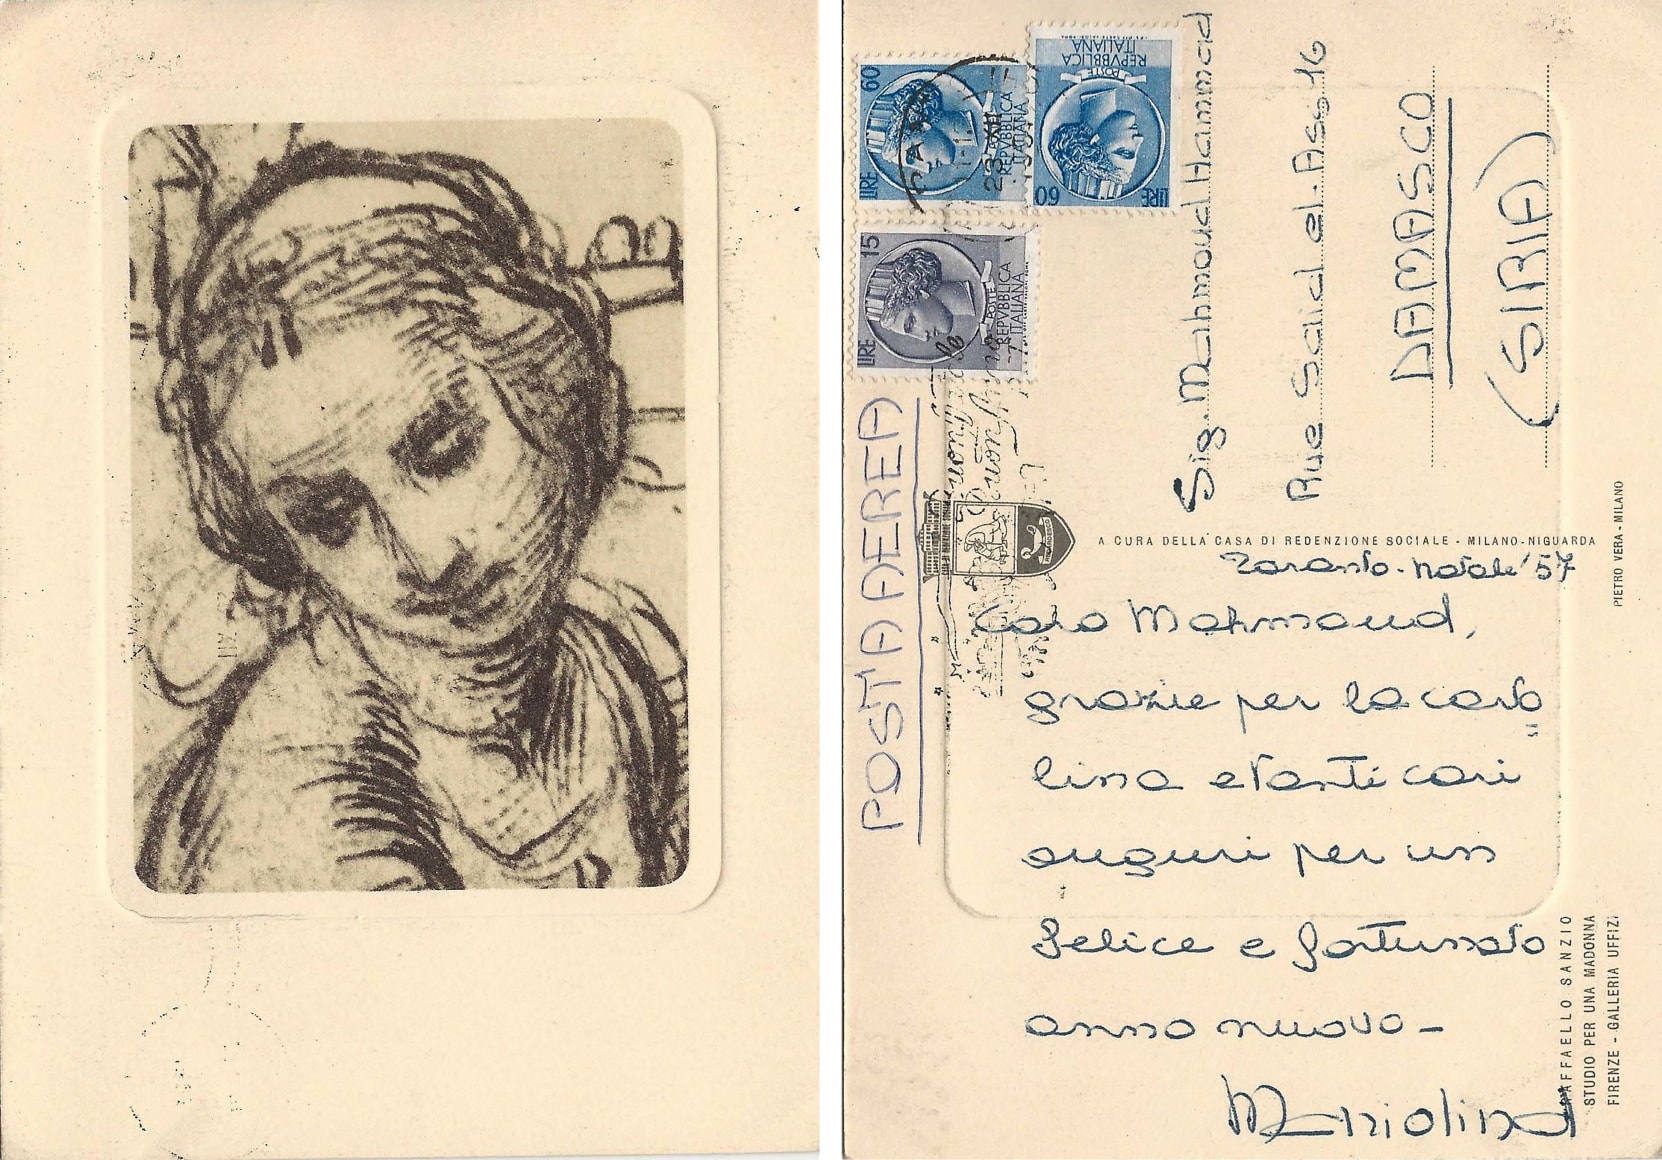 LIRE 60
POSTE
REPVBBLICA
ITALIANA
LIRE 60
POSTE
REPVBBLICA
ITALIANA
LIRE 15
POSTE
REPVBBLICA
ITALIANA
23 XII
POSTA AEREA
Sig. Mahmoud Hammad
Rue Said el-Ass 16
DAMASCO
(SIRIA)
A CURA DELLA CASA DI REDENZIONE SOCIALE - MILANO-NIGUARDA
PIETRO VERA - MILANO
Taranto - Natale '57
Caro Mahmoud,
grazie per la carto
lina e tanti cari
auguri per un
felice e fortunato
anno nuovo -
Mariolina
RAFFAELLO SANZIO
STUDIO PER UNA MADONNA
FIRENZE - GALLERIA UFFIZI